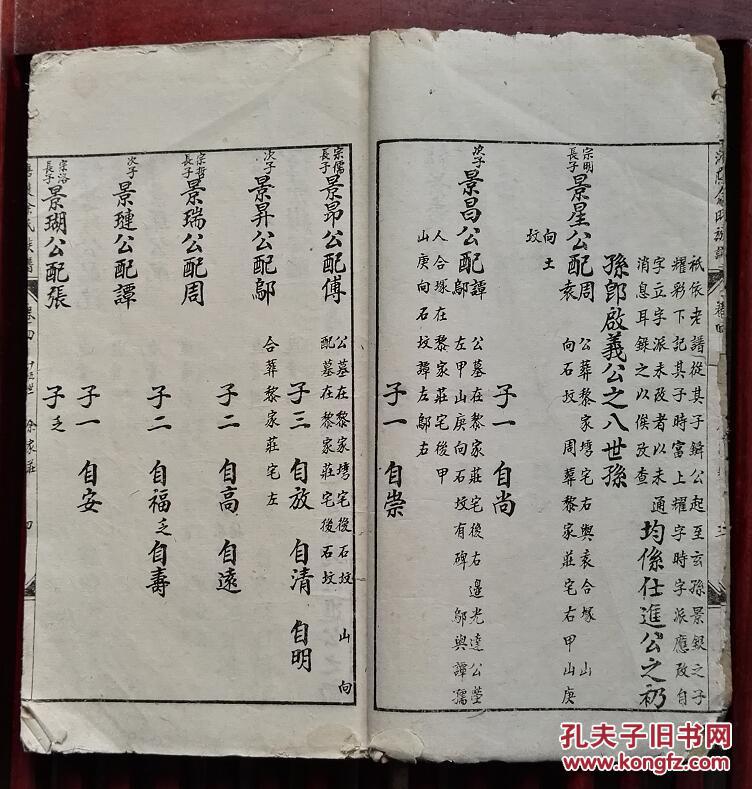 祇依老譜從其子公起至玄孫景銀之子
耀彩下記其子時富上耀字時字派應改自
字立字派未改者以未通
消息耳錄之以俟改查
均係仕進公之礽
孫郎啟義公之八世孫
宗明長子
景星公配周袁
公葬黎家塆宅右與袁合塚山
向石坟 周葬黎家莊宅右甲山庚
向土坟
子一 自尚
次子
景昌公配譚鄔
公墓在黎家莊宅後右邊光達公塋
左甲山庚向石坟有碑 鄔與譚孺
人合塚在黎家莊宅後甲
山庚向石坟譚左鄔右
子一 自崇
宗儒長子
景昂公配傅
公墓在黎家塆宅後石坟 山向
配墓在黎家莊宅後石坟
子三 自放 自清 自明
次子
景昇公配鄔
合葬黎家莊宅左
宗哲長子
景瑞公配周
子二 自高 自遠
次子
景璉公配譚
子二 自福乏 自壽
宗洛長子
景瑚公配張
子一 自安
子乏
余氏族譜 卷四 余家莊 四
孔夫子旧书网
www.kongfz.com